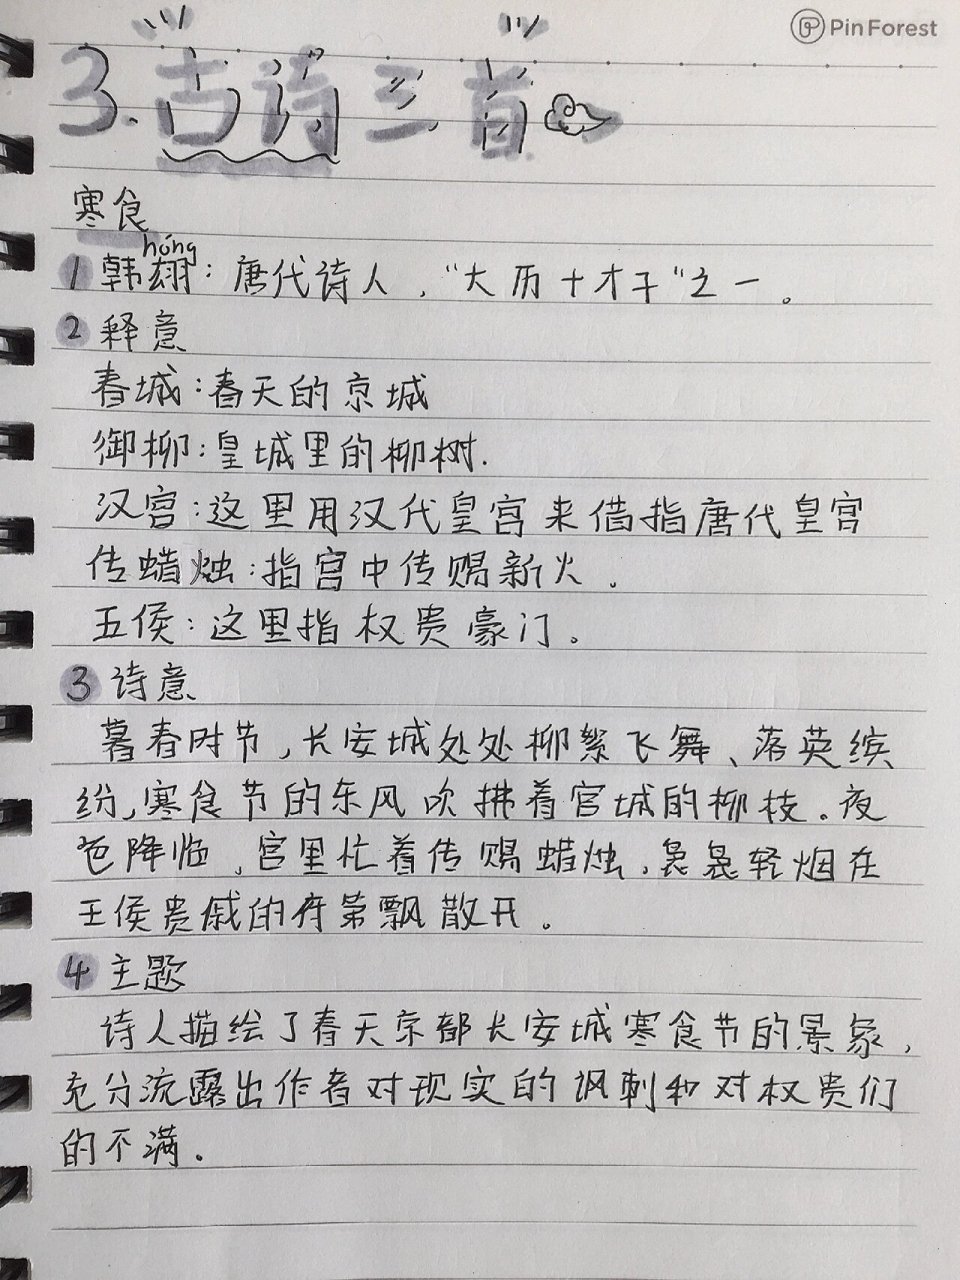 PinForest
3.古诗三首
寒食
hóng
1韩翃：唐代诗人，“大历十才子”之一。
2释意
春城：春天的京城
御柳：皇城里的柳树.
汉宫：这里用汉代皇宫来借指唐代皇宫
传蜡烛：指宫中传赐新火.
五侯：这里指权贵豪门。
3诗意
暮春时节，长安城处处柳絮飞舞、落英缤
纷，寒食节的东风吹拂着宫城的柳枝。夜
色降临，宫里忙着传赐蜡烛，袅袅轻烟在
王侯贵戚的府第飘散开。
4主题
诗人描绘了春天京都长安城寒食节的景象，
充分流露出作者对现实的讽刺和对权贵们
的不满.